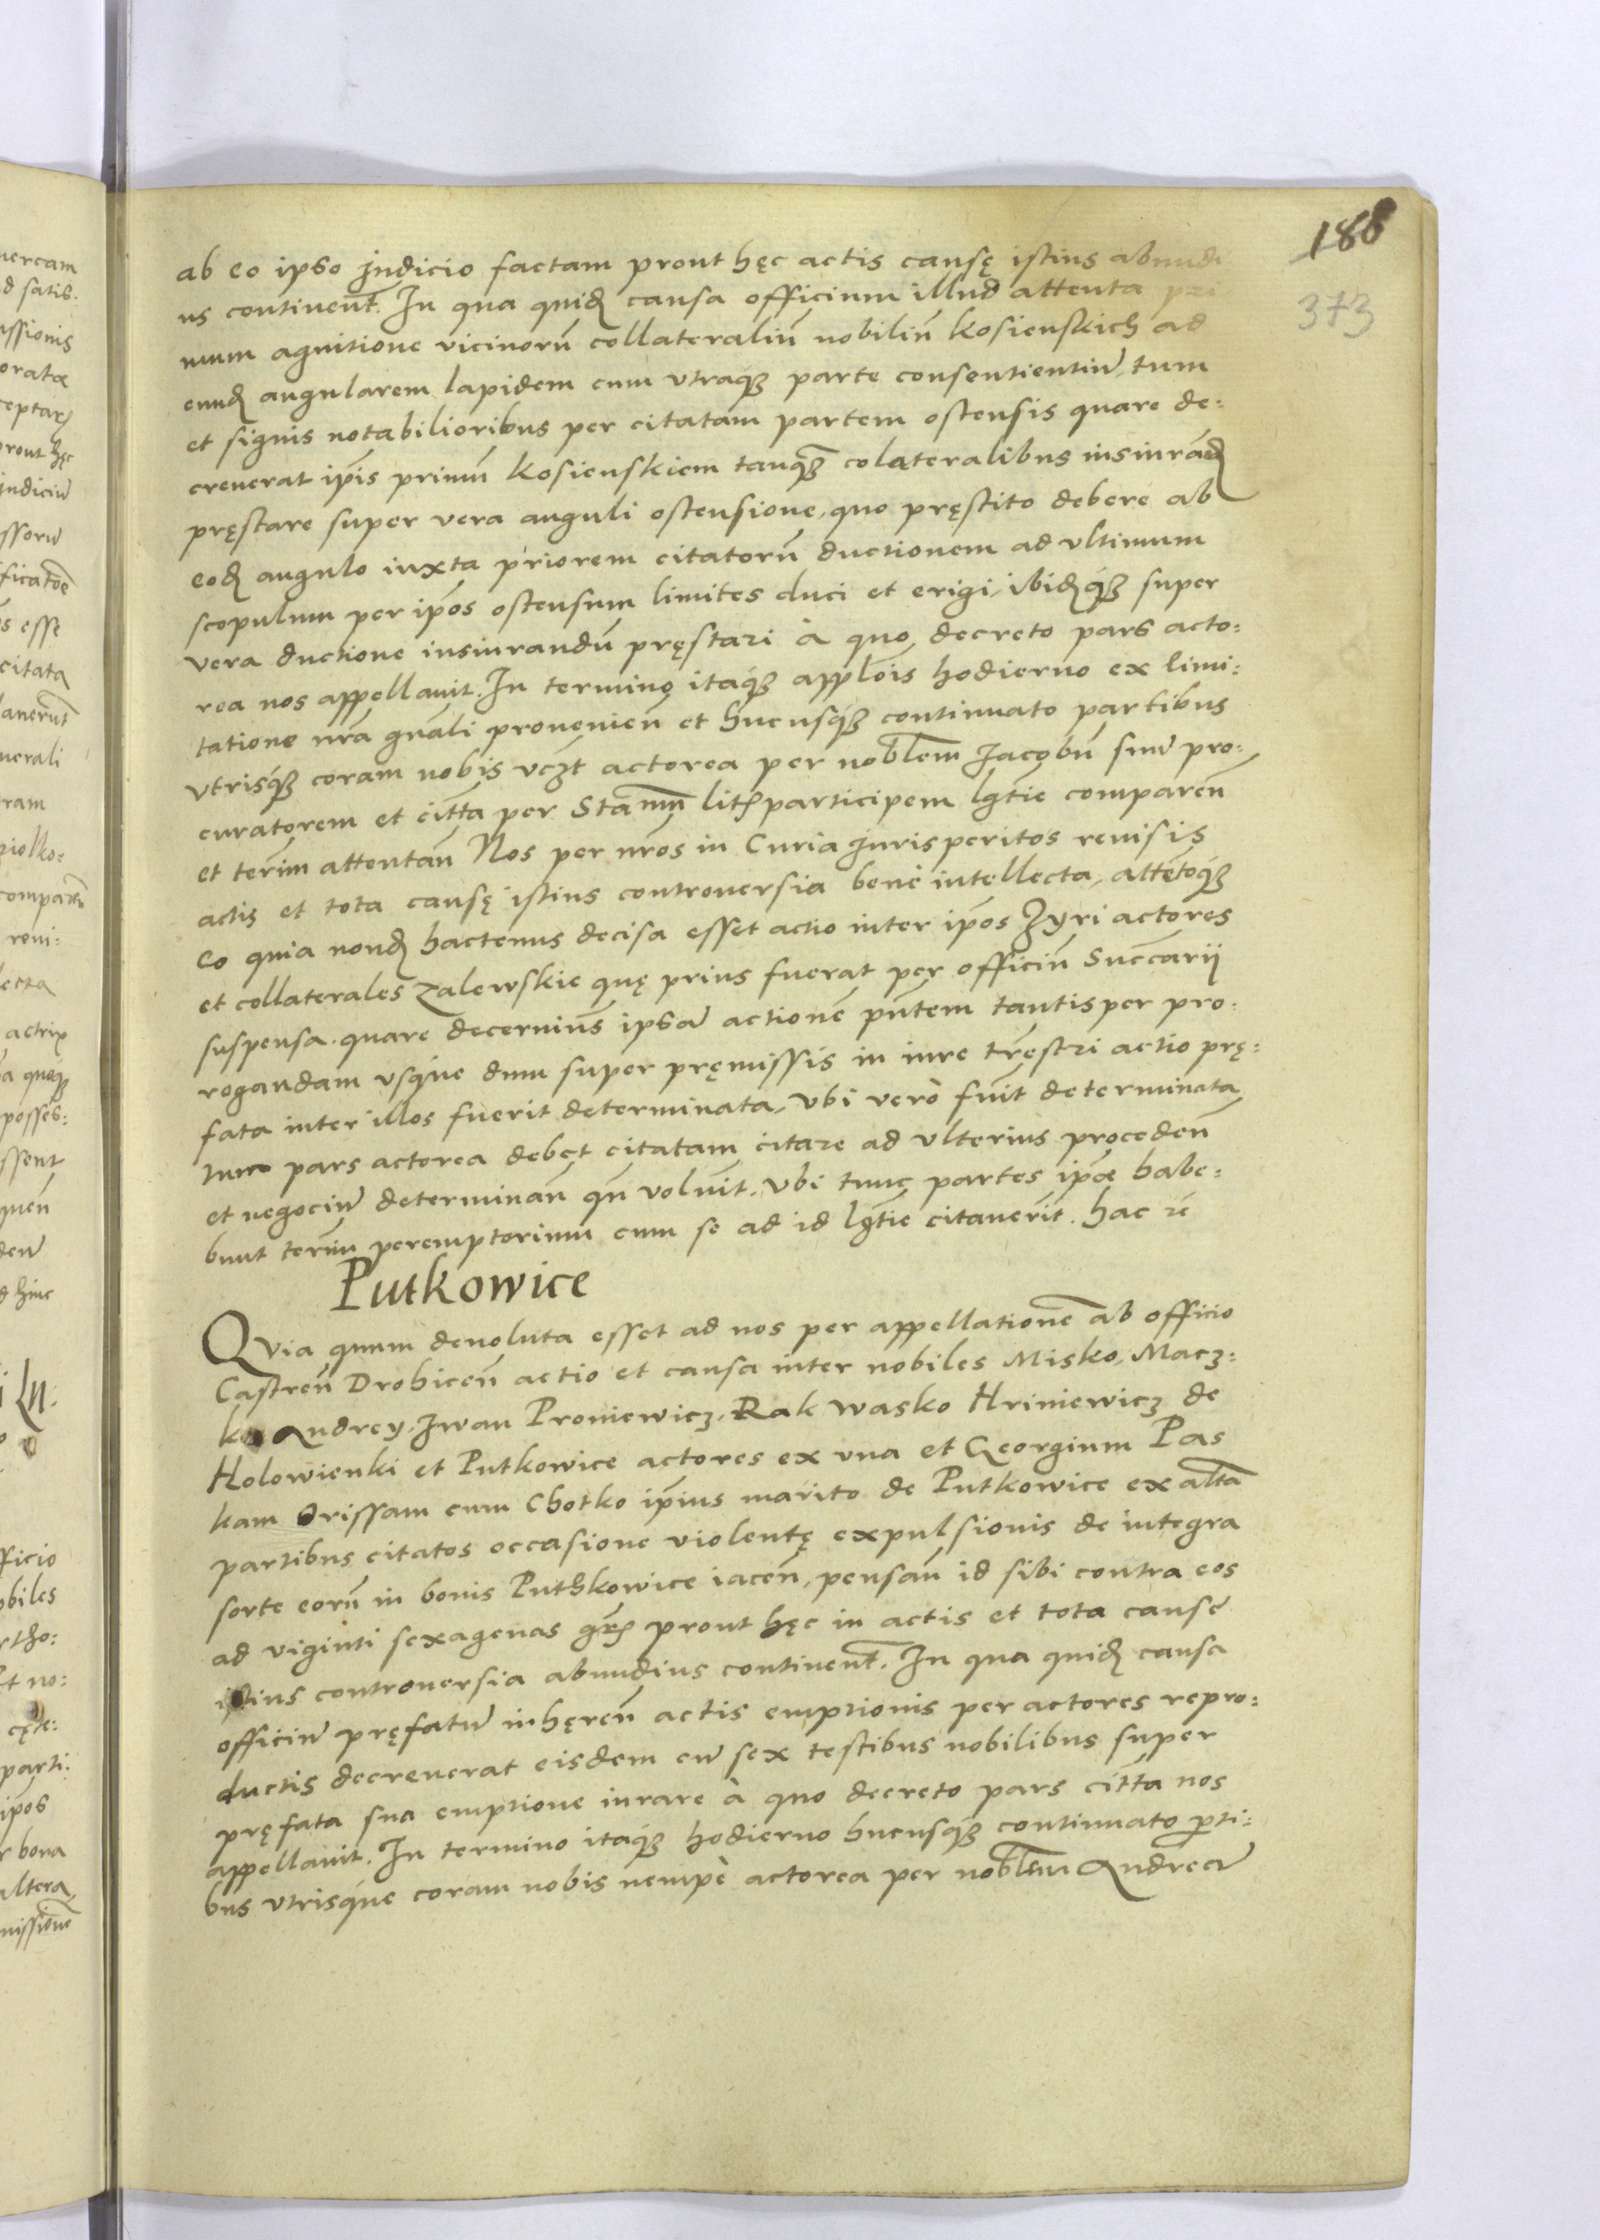 188
373
ab eo ipso judicio factam prout hęc actis causę istius abundi
us continent̃. In qua quid̃ causa officium illud attenta pri
mum agnitione vicinorũ collateraliũ nobiliũ Kosienskich ad
eund̃ angularem lapidem cum vtraq̃ȝ parte consentientiũ, tum
et signis notabilioribus per citatam partem ostensis quare de:
creuerat ip̃is primũ Kosienskiem tanq̃ȝ colateralibus iusiurãd̃
pręstare super vera anguli ostensione, quo pręstito debere ab
eod̃ angulo iuxta priorem citatorũ ductionem ad vltimum
scopulum per ip̃os ostensum limites duci et erigi, ibid̃q̃ȝ super
vera ductione iusiurandũ pręstari à quo decreto pars acto:
rea nos appellauit. In termino itaq̃ȝ appl̃ois hodierno ex limi:
tatione nr̃a gñali prouenieñ et hucusq̃ȝ continuato partibus
vtrisq̃ȝ coram nobis vcȝt actorea per nobl̃em Jacobũ suũ pro:
curatorem et citt̃a per Stanm̃ lit̃ participem lg̃tie compareñ
et term̃ attentañ Nos per nr̃os in Curia jurisperitos reuisis
actis et tota causę istius controuersia bene intellecta, attẽtoq̃ȝ
eo quia nond̃ hactenus decisa esset actio inter ip̃os Zyri actores
et collaterales Zalewskie quę prius fuerat per officiũ Succ̃arij
suspensa. quare decernim̃s ipsam actionẽ pñtem tantisper pro:
rogandam vsque dum super pręmissis in iure tr̃estri actio prę:
fata inter illos fuerit determinata, vbi verò fuit̃ determinata
tunc pars actorea debet citatam citare ad vlterius procedeñ
et negociũ determinañ qñ voluit̃. Vbi tunc partes ip̃æ habe:
bunt term̃ peremptorium cum se ad id lg̃tie citauerit̃. hac rẽ
Putkowice
Quia quum deuoluta esset ad nos per appellationẽ ab officio
Castreñ Drohiceñ actio et causa inter nobiles Misko, Macȝ:
ko Andrey, Iwan Proniewicȝ, Rak Wasko Hriniewicȝ de
Holowienki et Putkowice actores ex vna et Georgium Pas
kam Orissam cum Chotko ip̃ius marito de Putkowice ex alt̃a
partibus citatos occasione violentę expulsionis de integra
sorte eorũ in bonis Puthkowice iaceñ, pensañ id sibi contra eos
ad viginti sexagenas gr̃ prout hęc in actis et tota causę
istius controuersia abundius continent̃. In qua quid̃ causa
officiũ pręfatũ inhęreñ actis emptionis per actores repro:
ductis decreuerat eisdem cũ sex testibus nobilibus super
pręfata sua emptione iurare à quo decreto pars citt̃a nos
appellauit. In termino itaq̃ȝ hodierno hucusq̃ȝ continuato p̃ti:
bus vtrisque coram nobis nempè actorea per nobl̃em Andreã